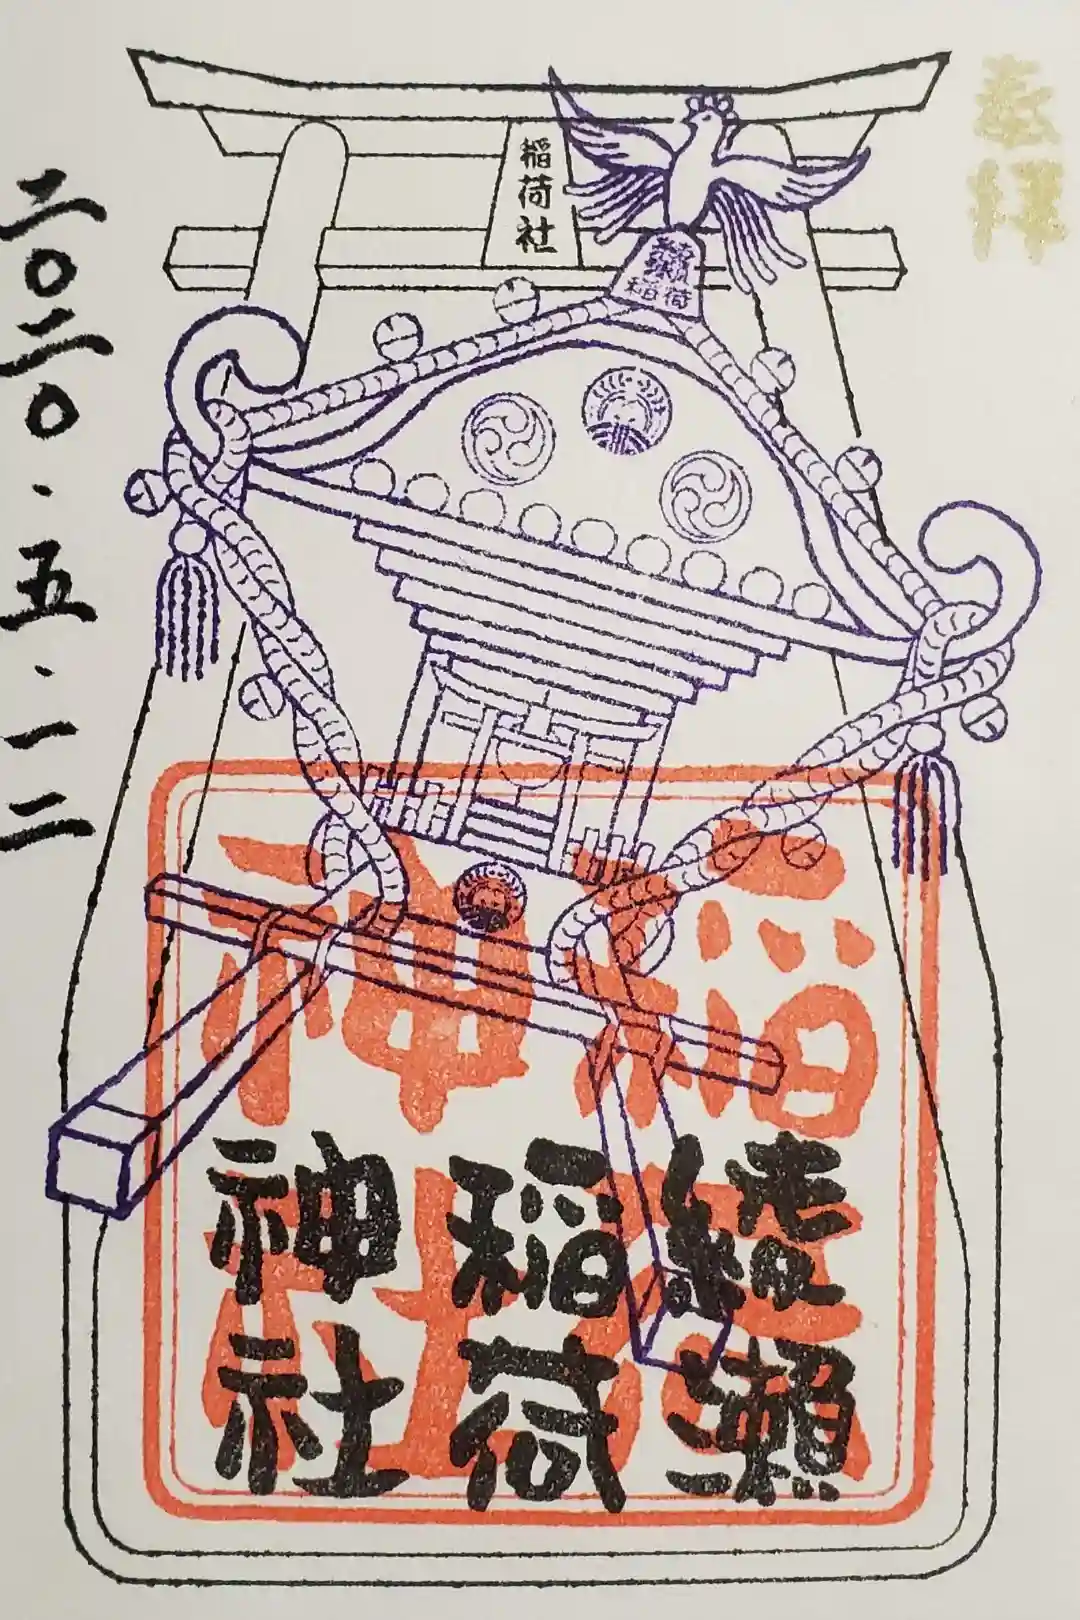 奉拝
稲荷社
綾瀬
稲荷
綾瀬
稲荷
神社
稲荷
神社
二〇二〇.五.一二